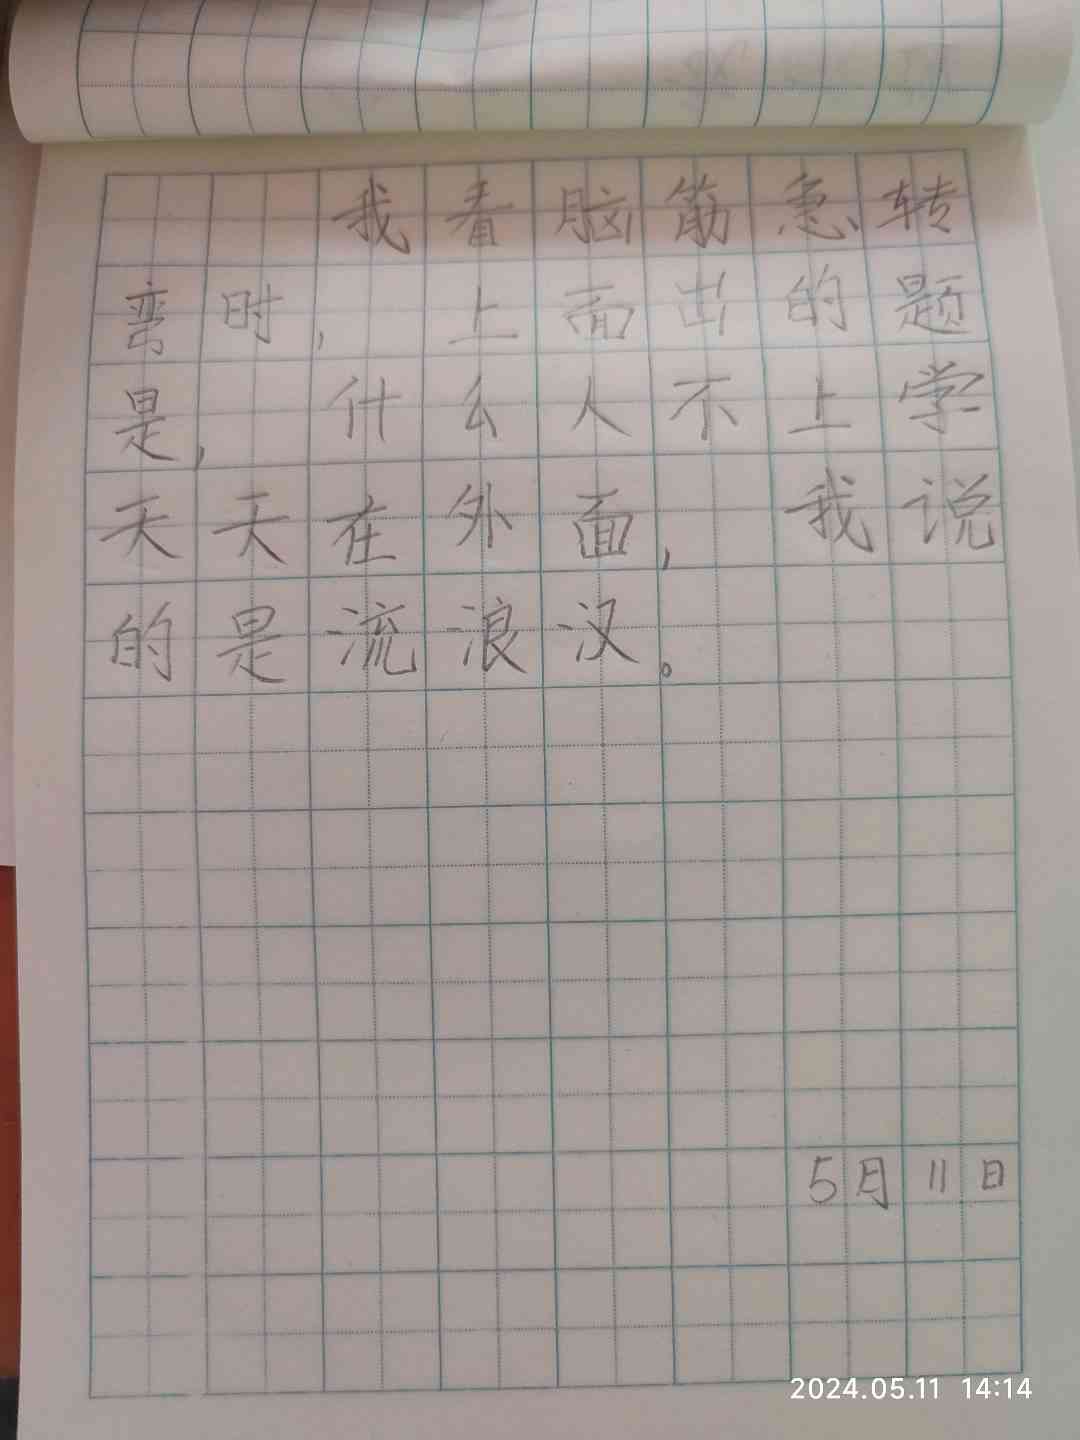 我看脑筋急转
弯时，上面出的题
是，什么人不上学
天天在外面，我说
的是流浪汉。
5月11日
2024.05.11 14:14